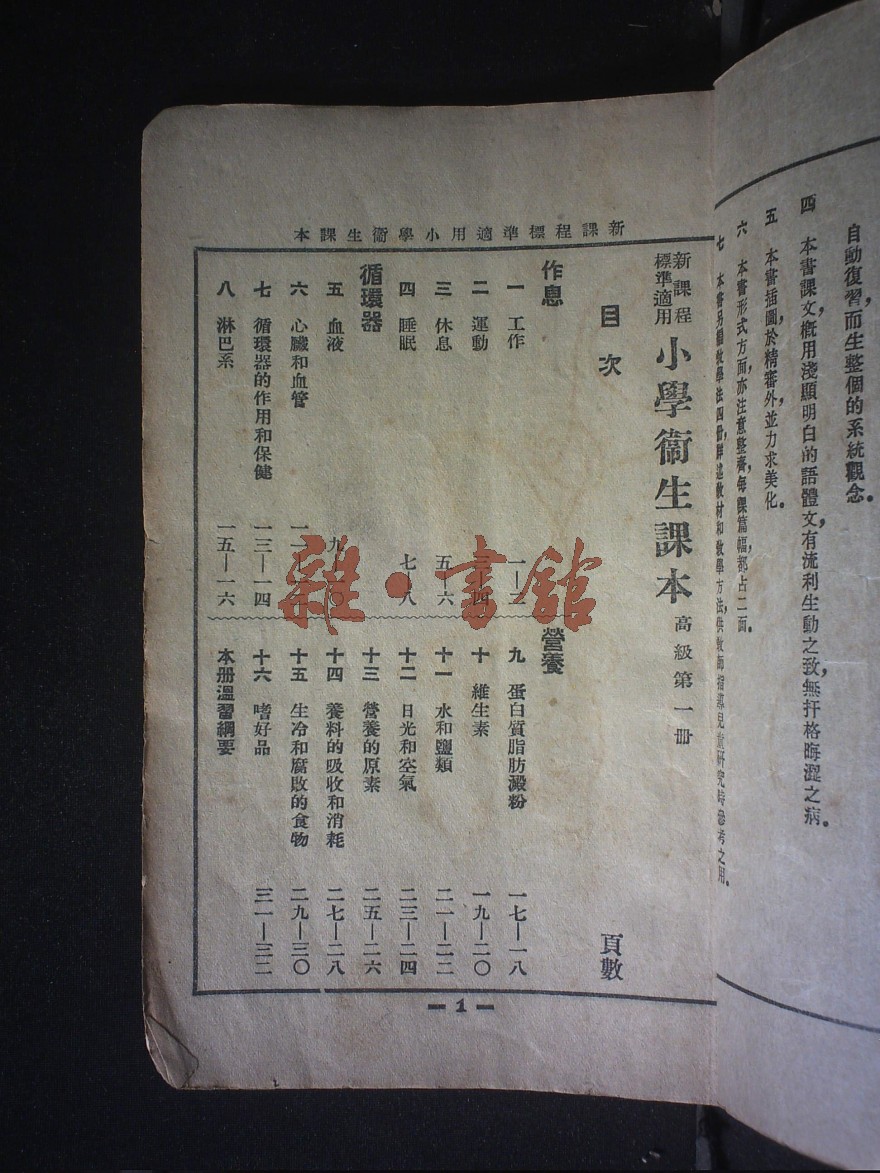 自動復習而生整個的系統觀念。
四 本書課文，概用淺顯明白的語體文，有流利生動之致，無扞格晦澀之病。
五 本書插圖，於精審外，並力求美化。
六 本書形式方面，亦注意整齊，每課篇幅，都占二面。
七 本書另編教學法四册，詳述教材和教學方法，供教師指導兒童研究時參考之用。
新課程標準適用小學衞生課本
新課程標準適用 小學衞生課本 高級第一册
目次 頁數
作息
一 工作 一—二
二 運動 三—四
三 休息 五—六
四 睡眠 七—八
循環器
五 血液 九—一〇
六 心臟和血管
七 循環器的作用和保健 一三—一四
八 淋巴系 一五—一六
營養
九 蛋白質脂肪澱粉 一七—一八
十 維生素 一九—二〇
十一 水和鹽類 二一—二二
十二 日光和空氣 二三—二四
十三 營養的原素 二五—二六
十四 養料的吸收和消耗 二七—二八
十五 生冷和腐敗的食物 二九—三〇
十六 嗜好品 三一—三二
本册溫習綱要
— 1 —
雜·書館